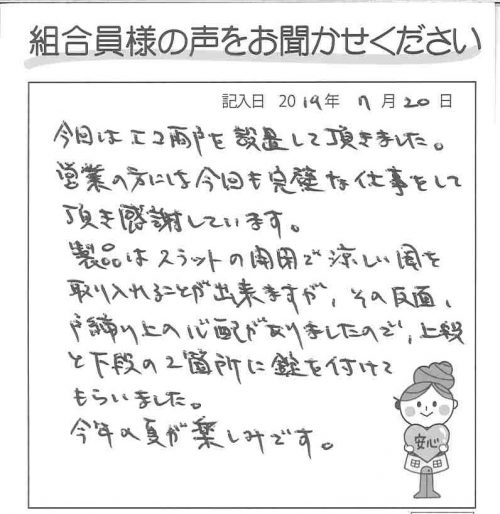 組合員様の声をお聞かせください
記入日 2019年 7月20日
今回はエコ雨戸を設置して頂きました。
営業の方には今回も完璧な仕事をして
頂き感謝しています。
製品はスラットの開閉で涼しい風を
取り入れることが出来ますが、その反面、
戸締り上の心配がありましたので、上段
と下段の2箇所に錠を付けて
もらいました。
今年の夏が楽しみです。
安心